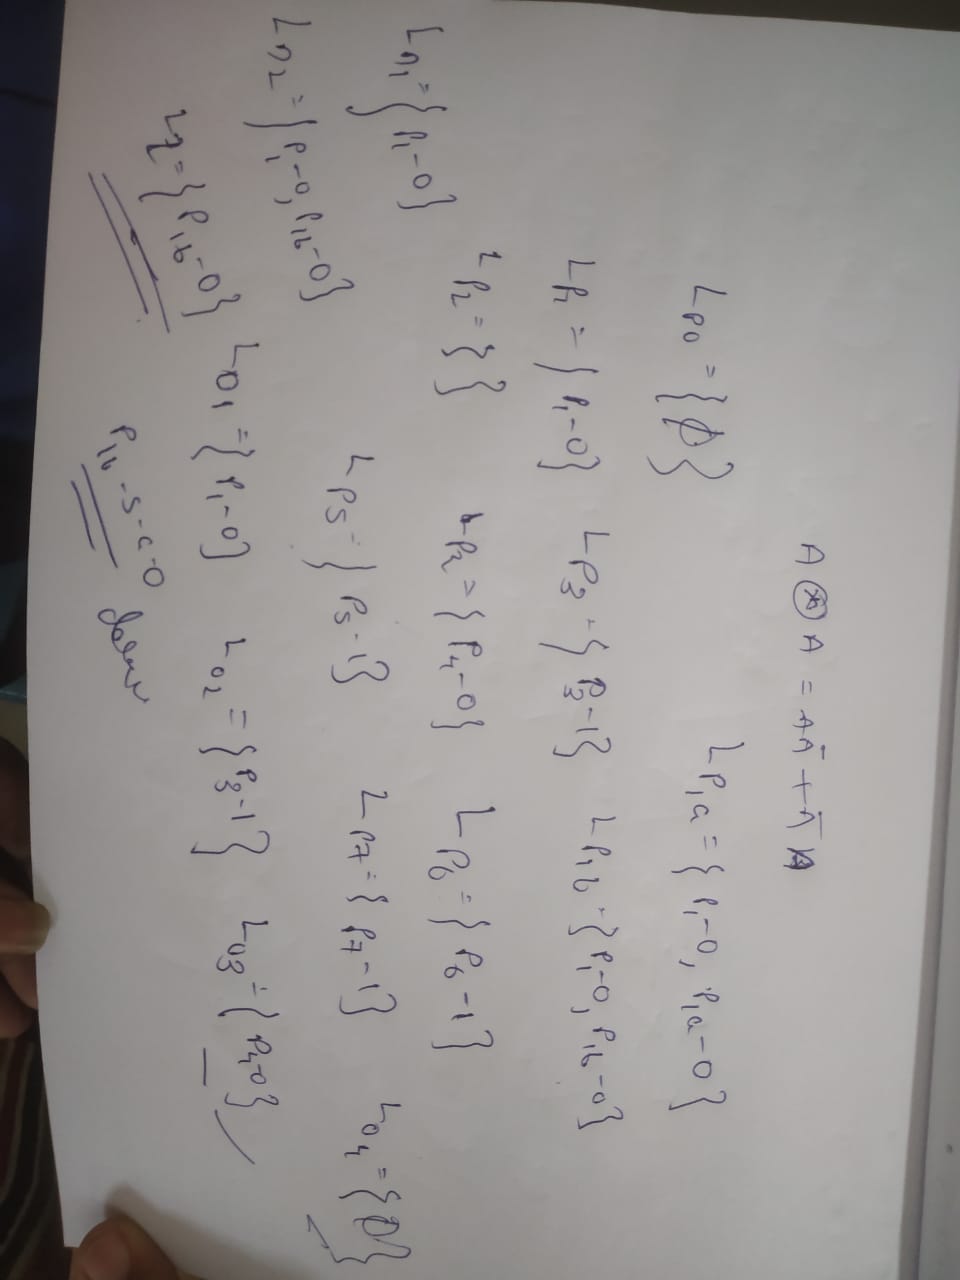 A ⊛ A = AĀ + Ā A
L_P0 = {∅}
L_P1a = {P1-0, P1a-0}
L_P1 = {P1-0}
L_P3 = {P3-1}
L_P1b = {P1-0, P1b-0}
L_P2 = { }
L_P2 = {P4-0}
L_P6 = {P6-1}
L_n1 = {P1-0}
L_P5 = {P5-1}
L_P7 = {P7-1}
L_O4 = {∅}
L_n2 = {P1-0, P1b-0}
L_O1 = {P1-0}
L_O2 = {P3-1}
L_O3 = {P4-0}
L_Z = {P1b-0}
P1b-s-a-0